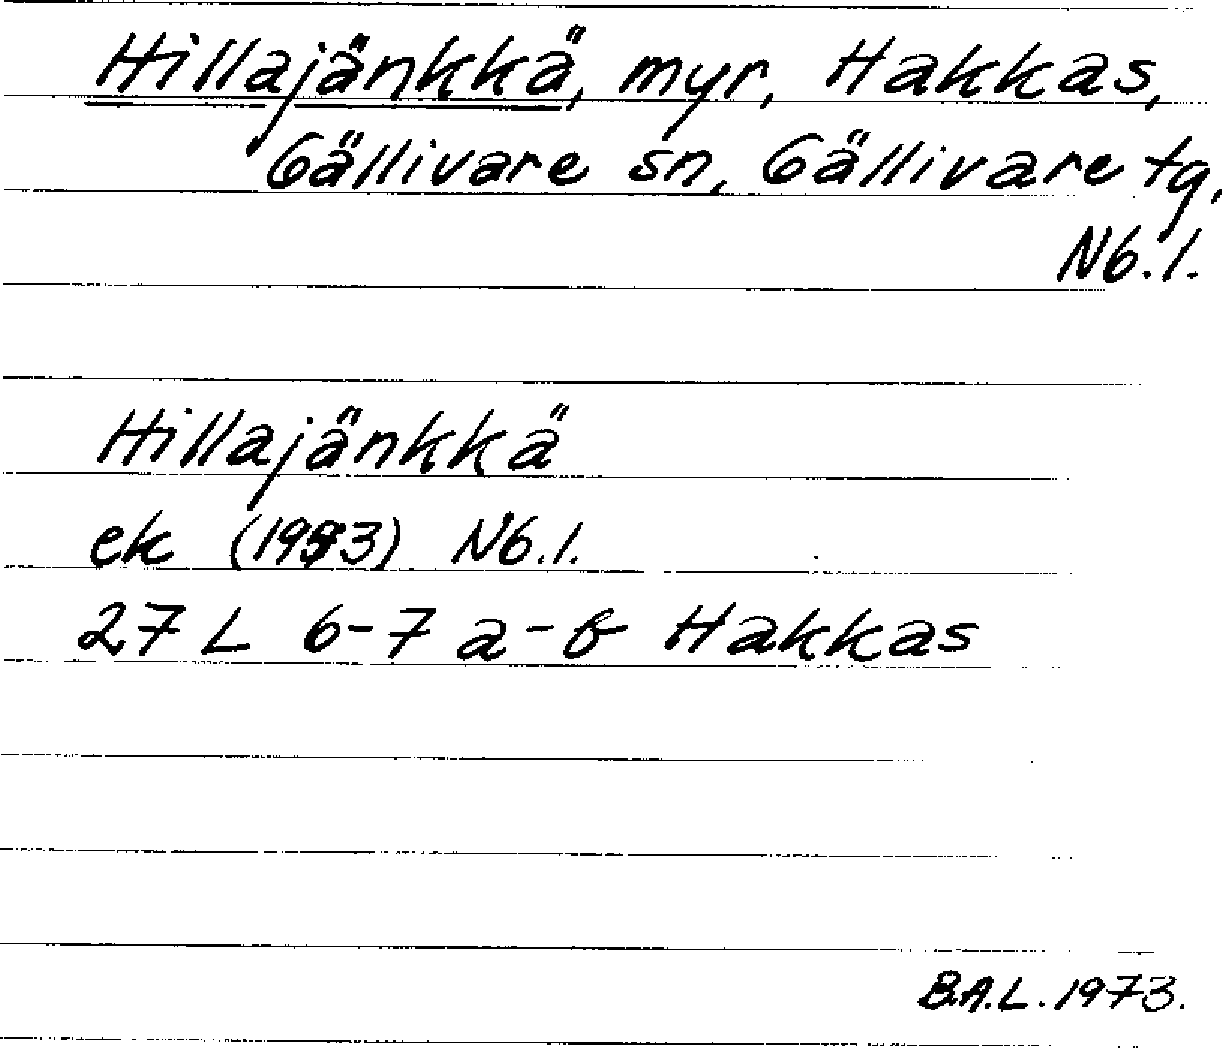 Hillajänkkä, myr, Hakkas,
Gällivare sn, Gällivare tg,
Nb.l.
Hillajänkkä
ek Nb.l.
27 L 6-7 a-b Hakkas
B.A.L. 1973.